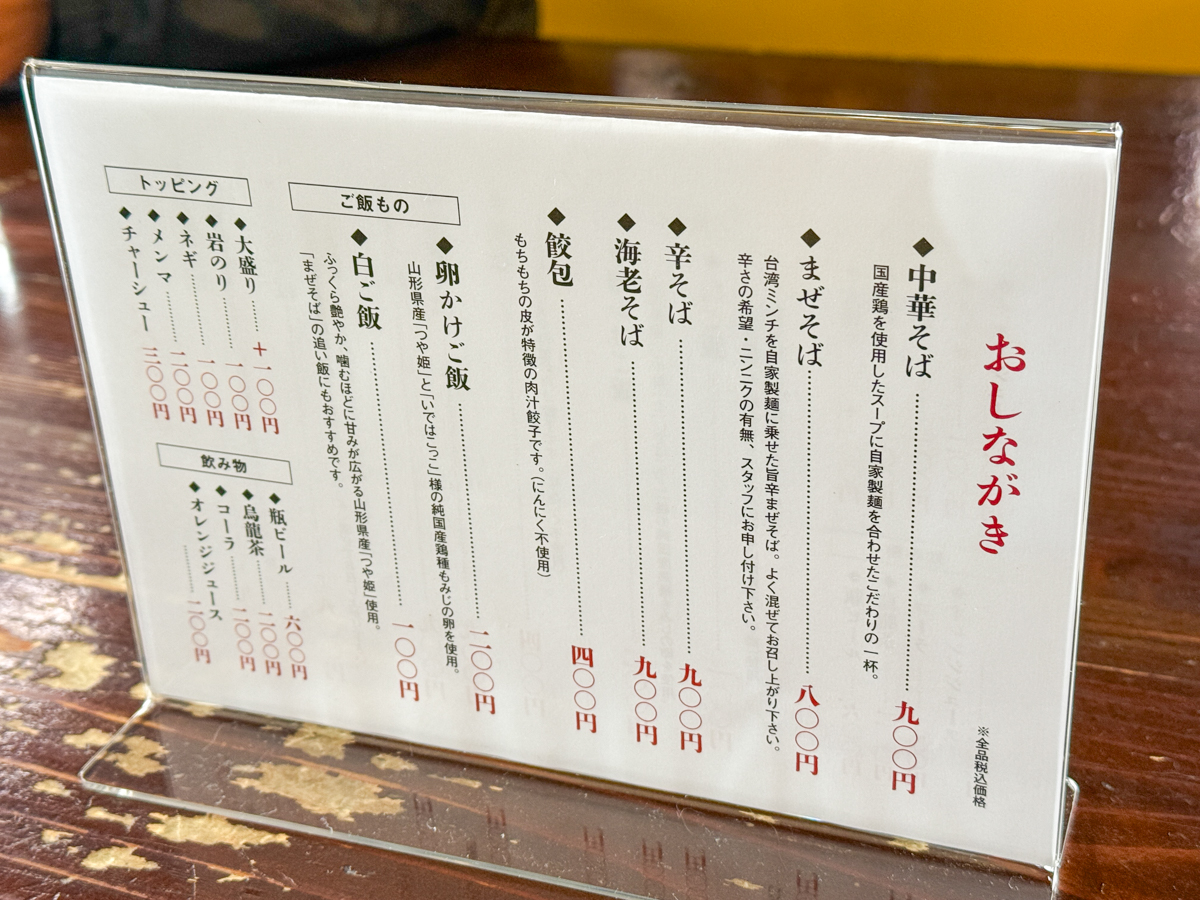 おしながき
※全品税込価格
◆中華そば………九〇〇円
国産鶏を使用したスープに自家製麺を合わせたこだわりの一杯。
◆まぜそば………八〇〇円
台湾ミンチを自家製麺に乗せた旨辛まぜそば。よく混ぜてお召し上がり下さい。
辛さの希望・ニンニクの有無、スタッフにお申し付け下さい。
◆辛そば………九〇〇円
◆海老そば………九〇〇円
◆餃包………四〇〇円
もちもちの皮が特徴の肉汁餃子です。（にんにく不使用）
ご飯もの
◆卵かけご飯………二〇〇円
山形県産「つや姫」と「いではこっこ」様の純国産鶏種もみじの卵を使用。
◆白ご飯………一〇〇円
ふっくら艶やか、噛むほどに甘みが広がる山形県産「つや姫」使用。
「まぜそば」の追い飯にもおすすめです。
トッピング
◆大盛り………＋一〇〇円
◆岩のり………一〇〇円
◆ネギ………一〇〇円
◆メンマ………二〇〇円
◆チャーシュー………三〇〇円
飲み物
◆瓶ビール………六〇〇円
◆烏龍茶………二〇〇円
◆コーラ………二〇〇円
◆オレンジジュース………二〇〇円